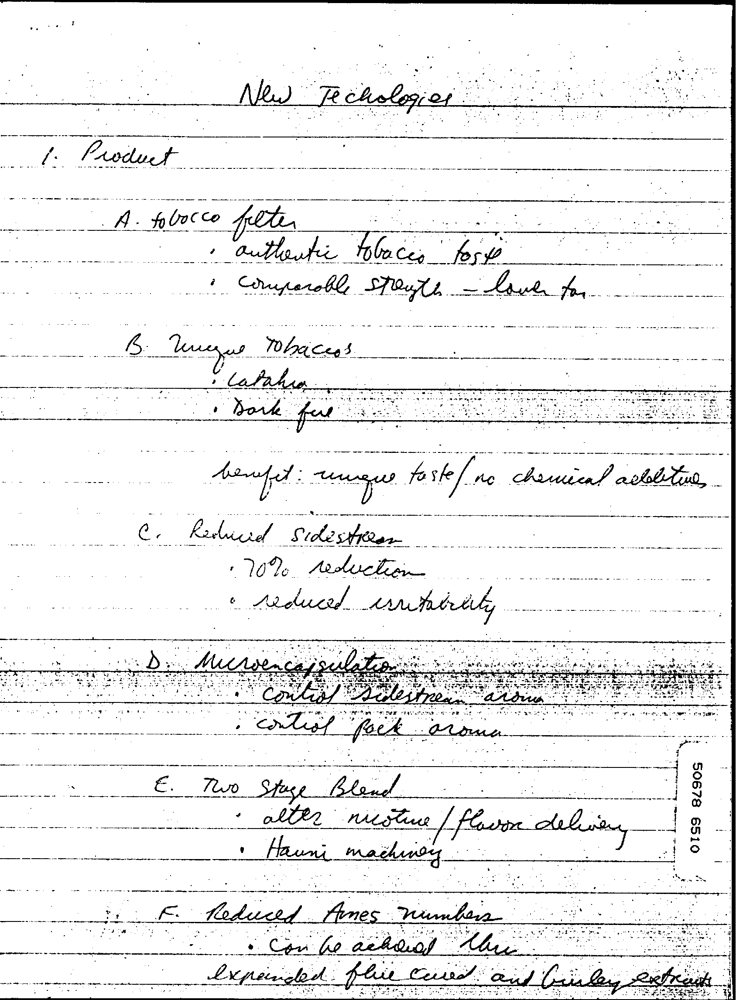 New Techologies
1. Product
A. tobacco filter
· authentic tobacco taste
· comparable strength – lower tar
B. Unique Tobaccos
· Latakia
· Dark fire
benefit: unique taste/no chemical additives
C. Reduced sidestream
· 70% reduction
· reduced irritability
D. Microencapsulation
· control sidestream aroma
· control pack aroma
E. Two Stage Blend
· alter nicotine/flavor delivery
· Hauni machinery
F. Reduced Ames numbers
· can be achieved thru
expanded flue cured and burley extracts
50678 6510